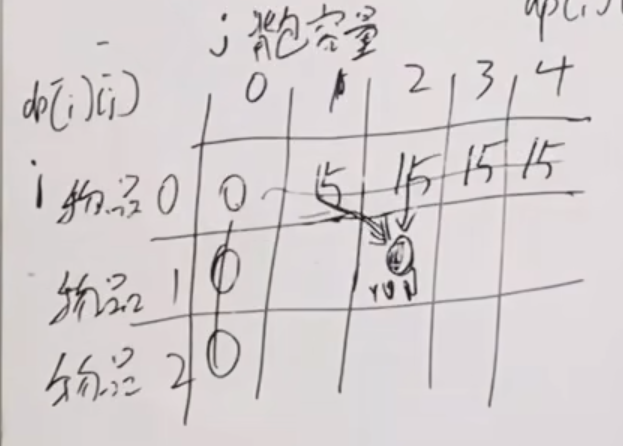 j 背包容量
dp[i][j] 0 1 2 3 4
i 物品0 0 15 15 15 15
物品1 0
物品2 0